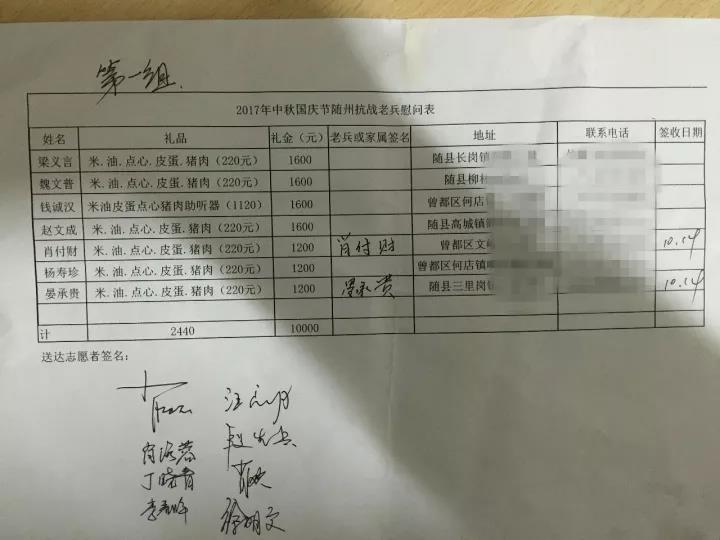 第一组.
2017年中秋国庆节随州抗战老兵慰问表
姓名 礼品 礼金（元） 老兵或家属签名 地址 联系电话 签收日期
梁义言 米.油.点心.皮蛋.猪肉（220元） 1600 随县长岗镇
魏文普 米.油.点心.皮蛋.猪肉（220元） 1600 随县柳林
钱诚汉 米油皮蛋点心猪肉助听器（1120） 1600 曾都区何店
赵文成 米.油.点心.皮蛋.猪肉（220元） 1600 随县高城镇
肖付财 米.油.点心.皮蛋.猪肉（220元） 1200 肖付财 曾都区文峰 10.14
杨寿珍 米.油.点心.皮蛋.猪肉（220元） 1200 曾都区何店镇
晏承贵 米.油.点心.皮蛋.猪肉（220元） 1200 晏承贵 随县三里岗镇 10.14
计 2440 10000
送达志愿者签名：